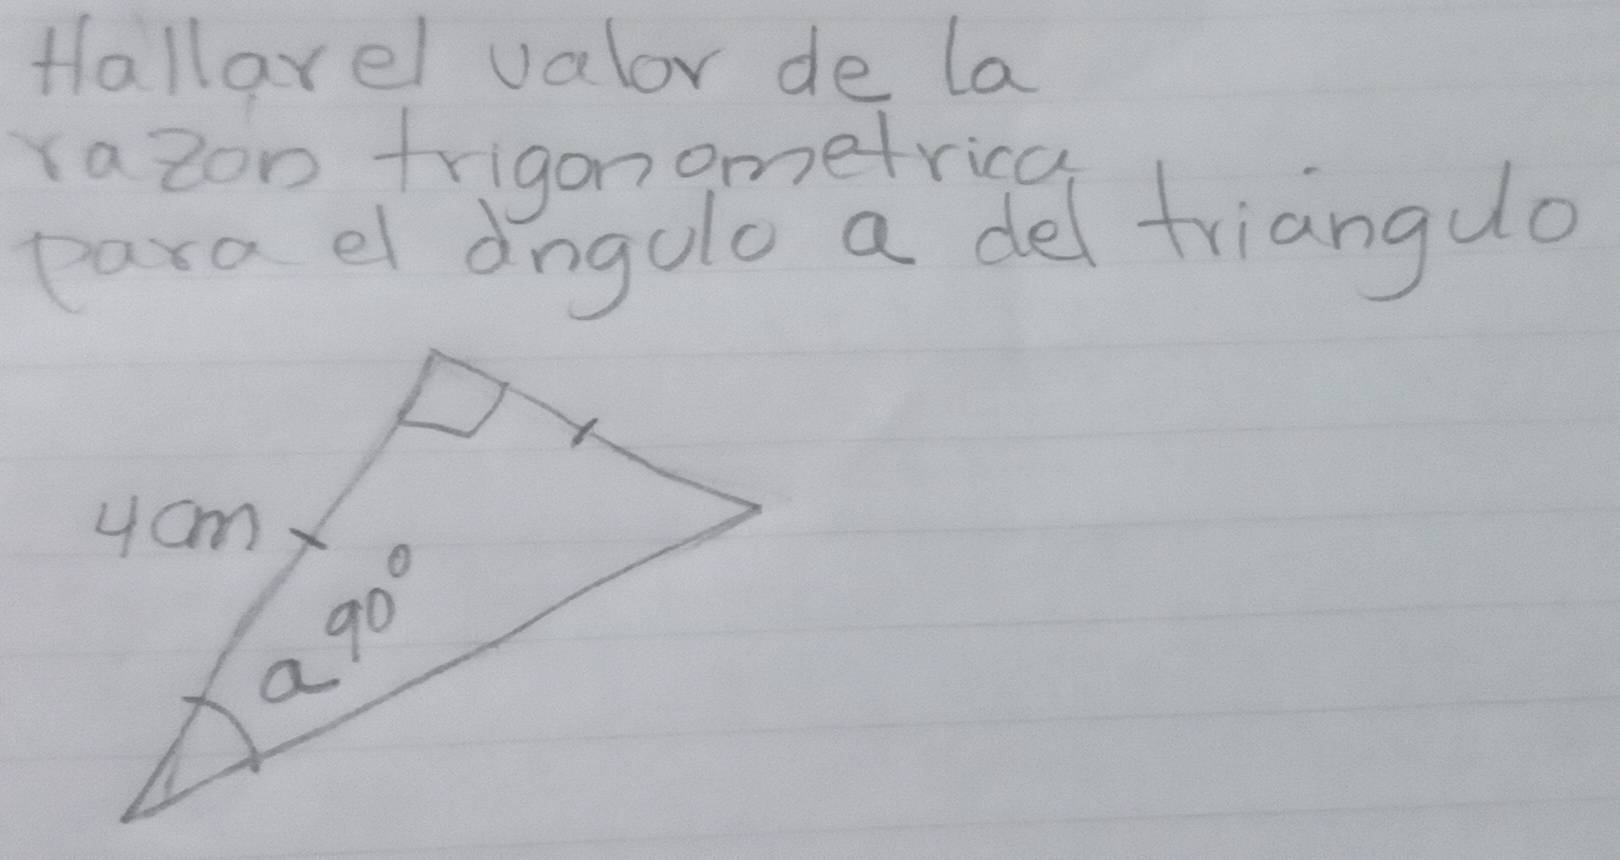 Hallar el valor de la
razon trigonometrica
para el ángulo a del triángulo
4cm
90°
a